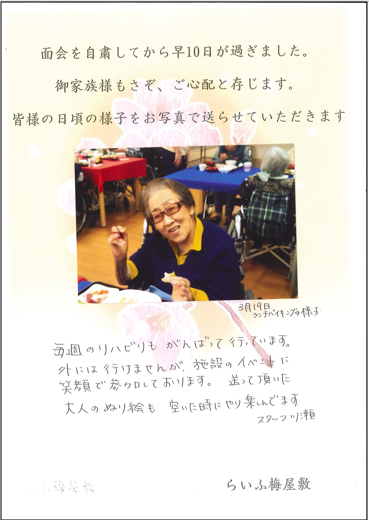 面会を自粛してから早10日が過ぎました。
御家族様もさぞ、ご心配と存じます。
皆様の日頃の様子をお写真で送らせていただきます
3月19日
ランチバイキングの様子
毎週のリハビリも がんばって行っています。
外には行けませんが、施設のイベントに
笑顔で参加しております。 送って頂いた
大人のぬり絵も 空いた時にやり楽しんでます
スタッフ川瀬
らいふ梅屋敷
らいふ梅屋敷